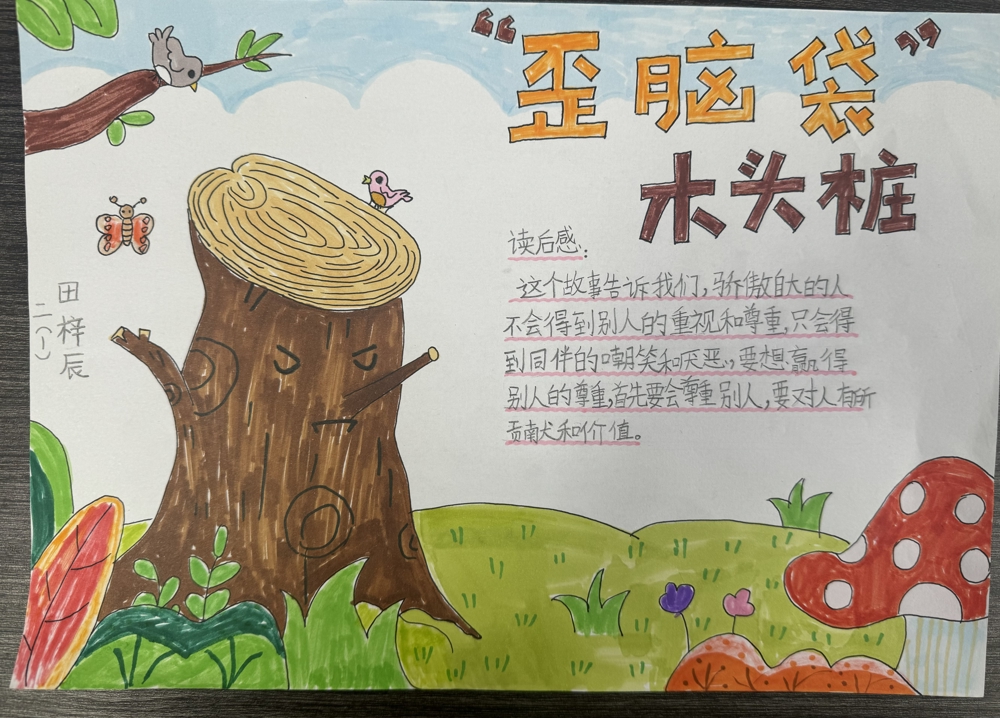 “歪脑袋”
木头桩
读后感:
这个故事告诉我们,骄傲自大的人
不会得到别人的重视和尊重,只会得
到同伴的嘲笑和厌恶,要想赢得
别人的尊重,首先要会尊重别人,要对人有所
贡献和价值。
田梓辰
二(一)